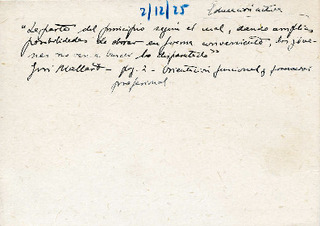 2/12/25 Educación activa
"Se parte del principio según el cual, dando amplias
posibilidades de obrar en forma conveniente, los jóve-
nes no van a buscar lo disparatado"
José Mallart - pág. 2 - Orientación funcional y formación
profesional